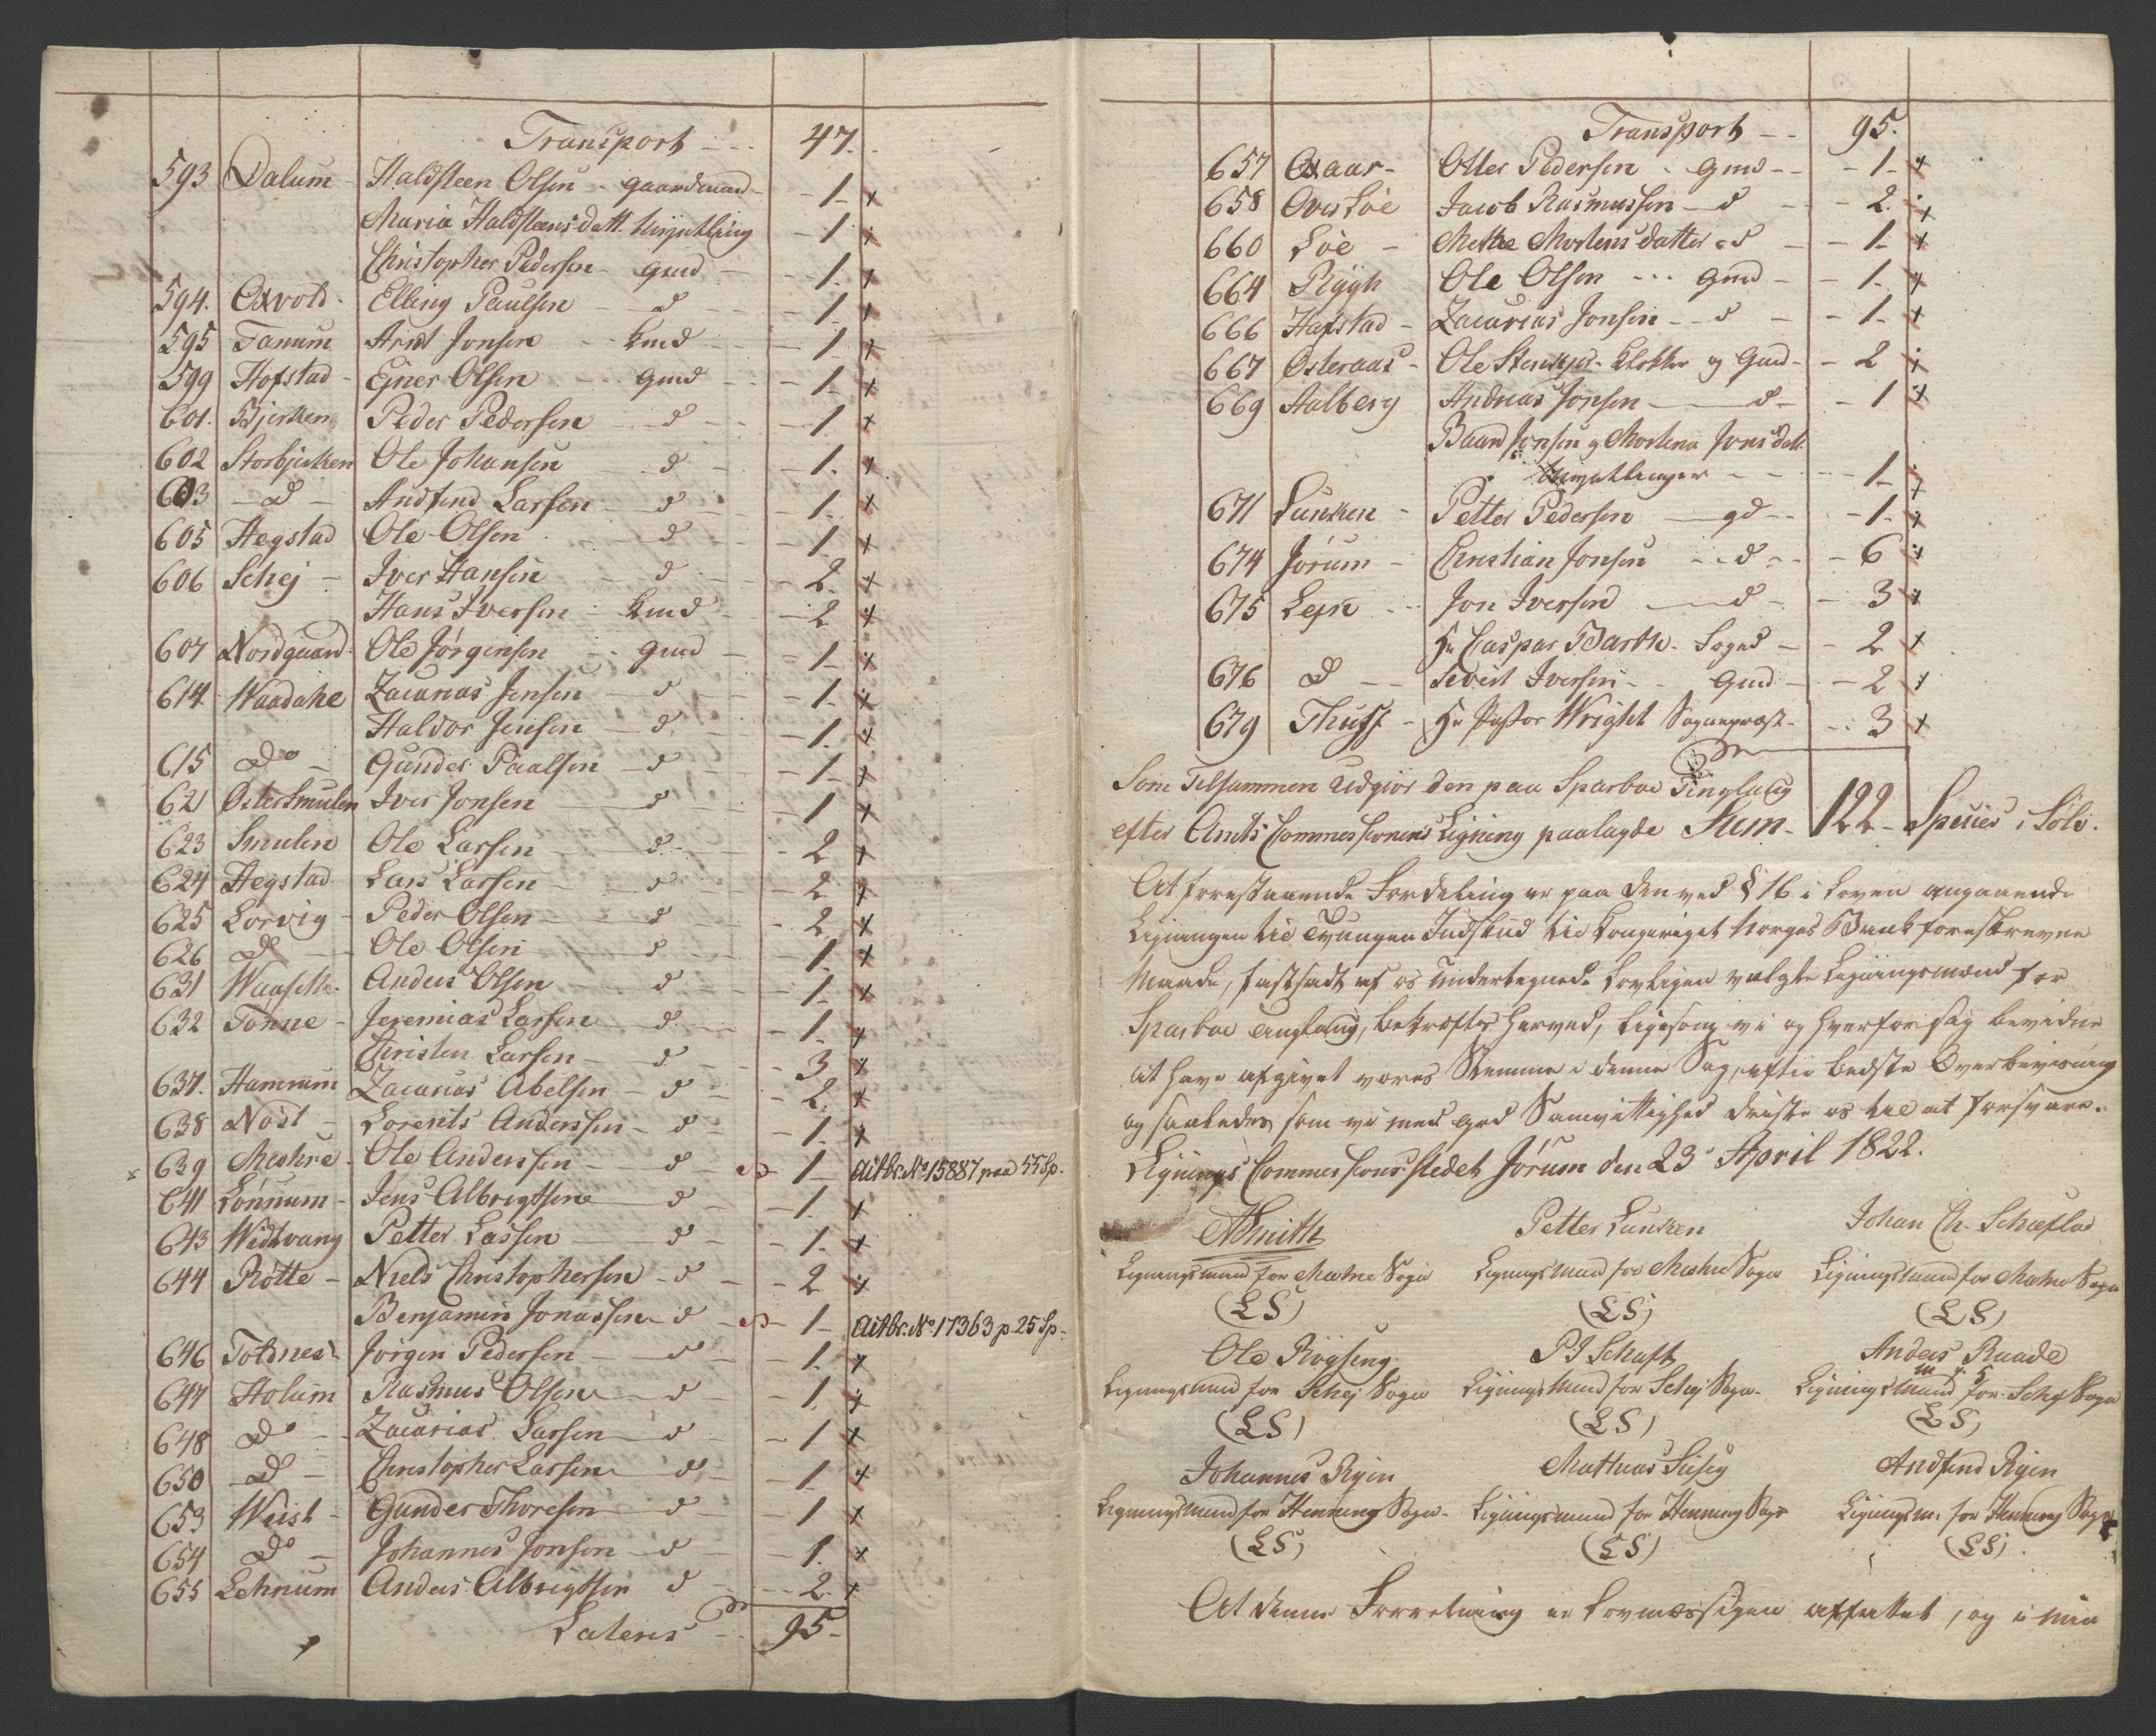 Transport - - - 47.
593 Dalum - Haldsteen Olsen - gaardmand - - 1 - x
Maria Haldsteensdatt. Umyndling - 1 - x
Christopher Pedersen - gmd - - 1. x
594. Oxvold - Elling Paulsen - d - - 1 - x
595 Tanum Arnt Jonsen - kmd - - 1 - x
599 Hofstad - Ejner Olsen - gmd - - 1 - x
601. Bjerken Peder Pedersen - d - - 1 - x
602 Storbjerken Ole Johansen - d - - 1. x
603 - d - Andfind Larsen - d - - 1. x
605 Hegstad Ole Olsen - d - - 1. x
606 Schej - Iver Hansen - d - - 2. x
Hans Iversen - kmd - - 2 x
607 Nordgaard - Ole Jørgensen - gmd - - 1 - x
614 Waadahe Zacarias Jensen - d - - 1. x
Haldor Jensen - d - - 1. x
615 Do - Gunder Paalsen - d - - 1 - x
621 Øster Smulen Iver Jonsen - d - - 1 x
623 Smulen Ole Larsen - d - - 2 x
624 Hegstad Lars Larsen - d - - 2 x
625 Lorvig - Peder Olsen - d - - 2 x
626 Do - Ole Olsen - d - - 1. x
631 Anders Olsen - d - - 1. x
632 Tønne - Jeremias Larsen - d - - 1. x
Christen Larsen - d - - 3 x
637. Hammum Zacarias Abelsen - d - - 2. x
638 Nøst - Lorents Anderssen - d - - 1. x
639 Mæhre - Ole Anderssen - d - 1 - Actbr. No 15887 paa 55 Sp.
641 Lønnum - Jens Albrigtsen - d - - 1. x
643 Widtvang Petter Lassen - d - - 1. x
644 Røtte - Niels Christophersen - d - - 2 x
Benjamin Jonassen - d - 1 - Actbr. No 17363 p. 25 Sp.
646 Toldnes - Jørgen Pedersen - d - - 1. x
647 Holum Rasmus Olsen - d - - 1. x
648 Do - Zacarias Larsen - d - - 1 x
650 - D - Christopher Larsen - d - - 1. x
653 Weist - Gunder Thoresen - d - - 1 x
654 Do - Johannes Jonsen - d - - 1. x
655 Lehnum Anders Albrigtsen d - - 2. x
Lateris - 95 -
Transport - - 95.
657 Oxaar - Otter Pedersen - gmd - - 1 - x
658 Jacob Rasmussen - d - - 2. x
660 Løe - Mette Mortensdatter - d - - 1 - x
664 Rygh Ole Olsen - - - gmd - - 1. x
666 Hafstad - Zacarias Jonsen - d - - 1 - x
667 Østeraas - Ole Stenkjer - Klokker og Gmd - - 2 x
669 Aalberg Andreas Jonsen - d - - 1 x
Baard Jonsen og Mortena Jonsdatt.
Umyndlinger - - - 1 - x
671 Lunken - Petter Pedersen - gd - - 1 - x
674 Jørum - Christian Jonsen - d - - 6 x
675 Lein - Jon Iversen - d - - 3 x
Hr Caspar Barth - Foged - - 2 x
676 D - - Sivert Iversen - Gmd - - 2 x
679 Hr Pastor Wright Sognepræst - - 3 x
Som Tilsammen udgiør den paa Sparboe Tinglaug
efter Amts Commissionens Ligning paalagde Sum - 122 - Species i Sølv.
At forestaaende Fordeling er paa den ved § 16 i Loven angaaende
Ligningen til Tvungen Indskud til Kongeriget Norges Bank foreskrevne
Maade, fastsadt af os undertegnede lovligen valgte Ligningsmænd for
Sparboe Tinglaug, bekræftes herved, ligesom vi og hver for sig bevidne
at have afgivet vores Stemme i denne Sag, efter bedste Overbeviisning
og saaledes som vi med god Samvittighed driste os til at forsvare.
Lignings Commissions stedet Jørum den 23de April 1822.
ASmith Petter Lunken Johan Ch. Scheflo
Ligningsmand for Mæhre Sogn Ligningsmand for Mæhre Sogn Ligningsmand for Mæhre Sogn
(LS) (LS) (LS)
Ole Røgseng P J Schaft Anders Raade
Ligningsmand for Schej Sogn Ligningsmand for Schej Sogn. Ligningsmand for Schej Sogn
(LS) (LS) (LS)
Johannes Ryin Mathias Andfind Ryin
Ligningsmand for Henning Sogn. Ligningsmand for Henning Sogn Ligningsm. for Henning Sogn
(LS) (LS) (LS)
At denne Forretning er lovmæssigen affattet, og i min